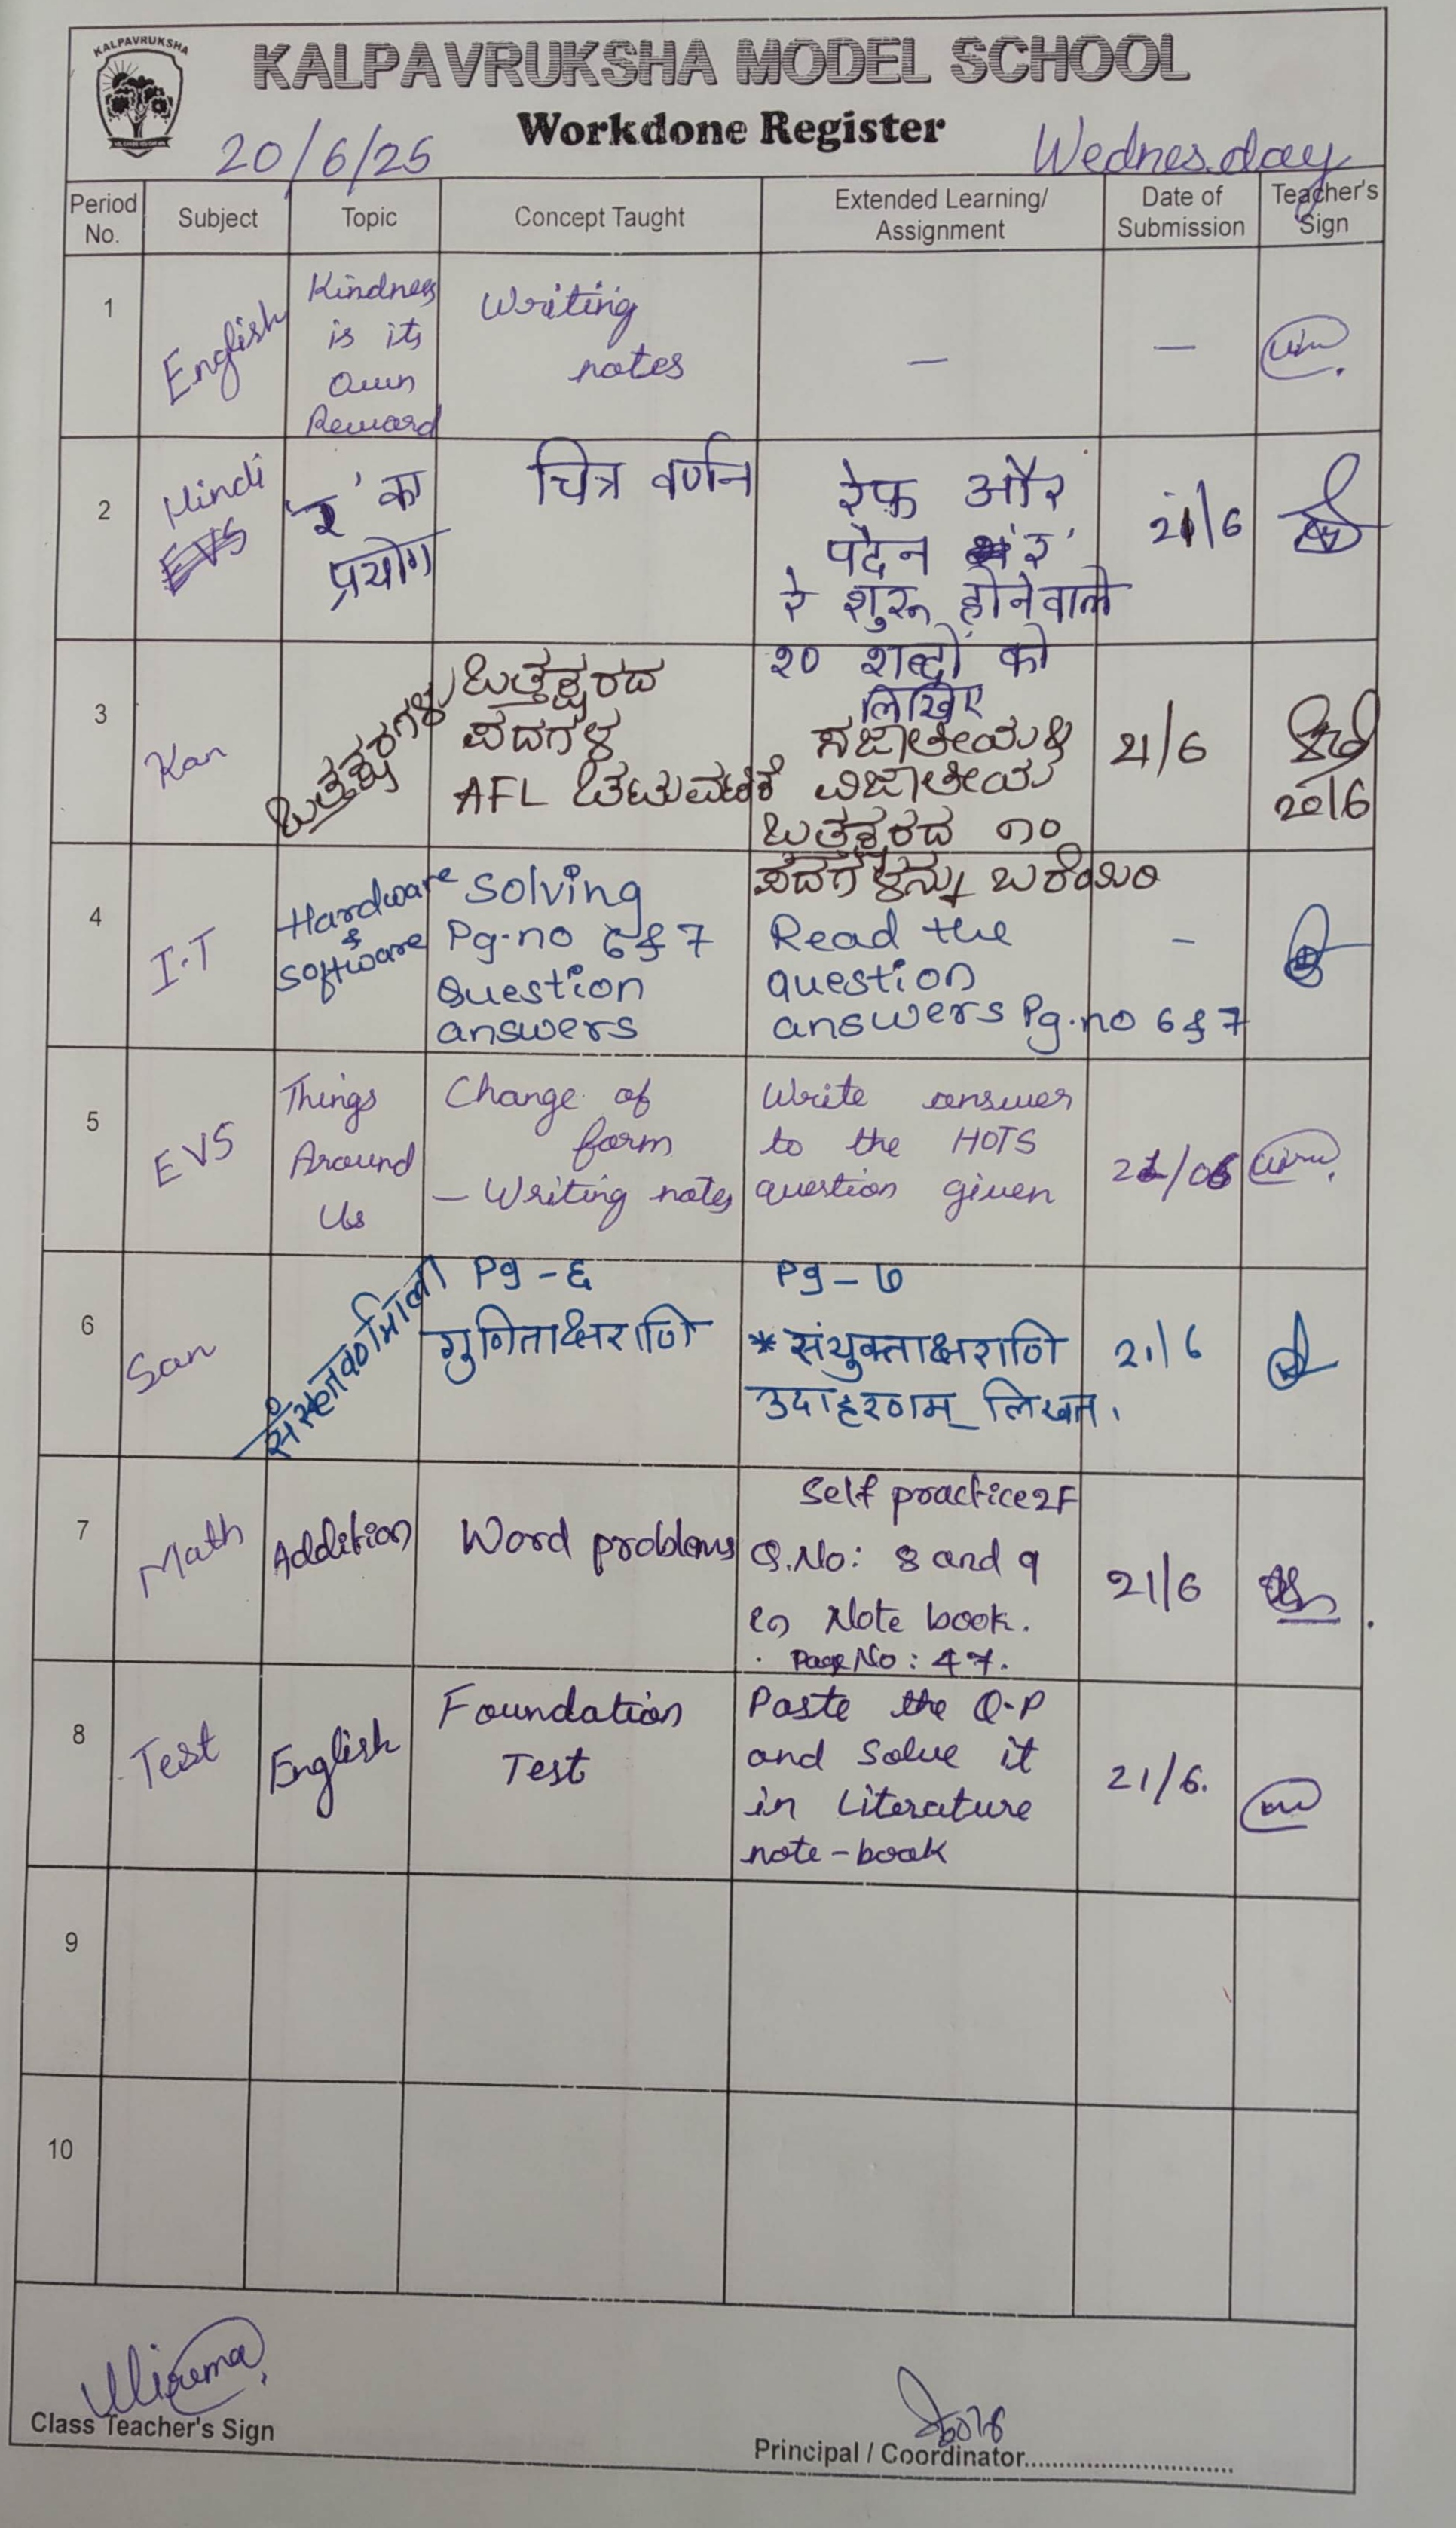 KALPAVRUKSHA
KALPAVRUKSHA MODEL SCHOOL
Workdone Register
20/6/25 Wednesday
Period No. Subject Topic Concept Taught Extended Learning/ Assignment Date of Submission Teacher's Sign
1 English Kindness is its Own Reward Writing notes — —
2 Hindi EVS 'र' का प्रयोग चित्र वर्णन रेफ और पदेन 'र' रे शुरू होनेवाले २० शब्दों को लिखिए 21/6
3 Kan ಒತ್ತಕ್ಷರಗಳು ಒತ್ತಕ್ಷರದ ಪದಗಳ AFL ಚಟುವಟಿಕೆ ಸಜಾತೀಯ & ವಿಜಾತೀಯ ಒತ್ತಕ್ಷರದ ೧೦ ಪದಗಳನ್ನು ಬರೆಯಿರಿ 21/6 20/6
4 I.T Hardware & Software Solving Pg.no 6 & 7 Question answers Read the question answers Pg.no 6 & 7 -
5 EVS Things Around Us Change of form – Writing notes Write answer to the HOTS question given 21/06
6 San Pg - ६ गुणिताक्षराणि Pg - ७ * संयुक्ताक्षराणि उदाहरणम् लिखत. 21/6
7 Math Addition Word problems Self practice 2F Q.No: 8 and 9 in Note book. Page No: 47. 21/6
8 Test English Foundation Test Paste the Q.P and Solve it in Literature note-book 21/6.
9
10
Class Teacher's Sign
Principal / Coordinator..............................